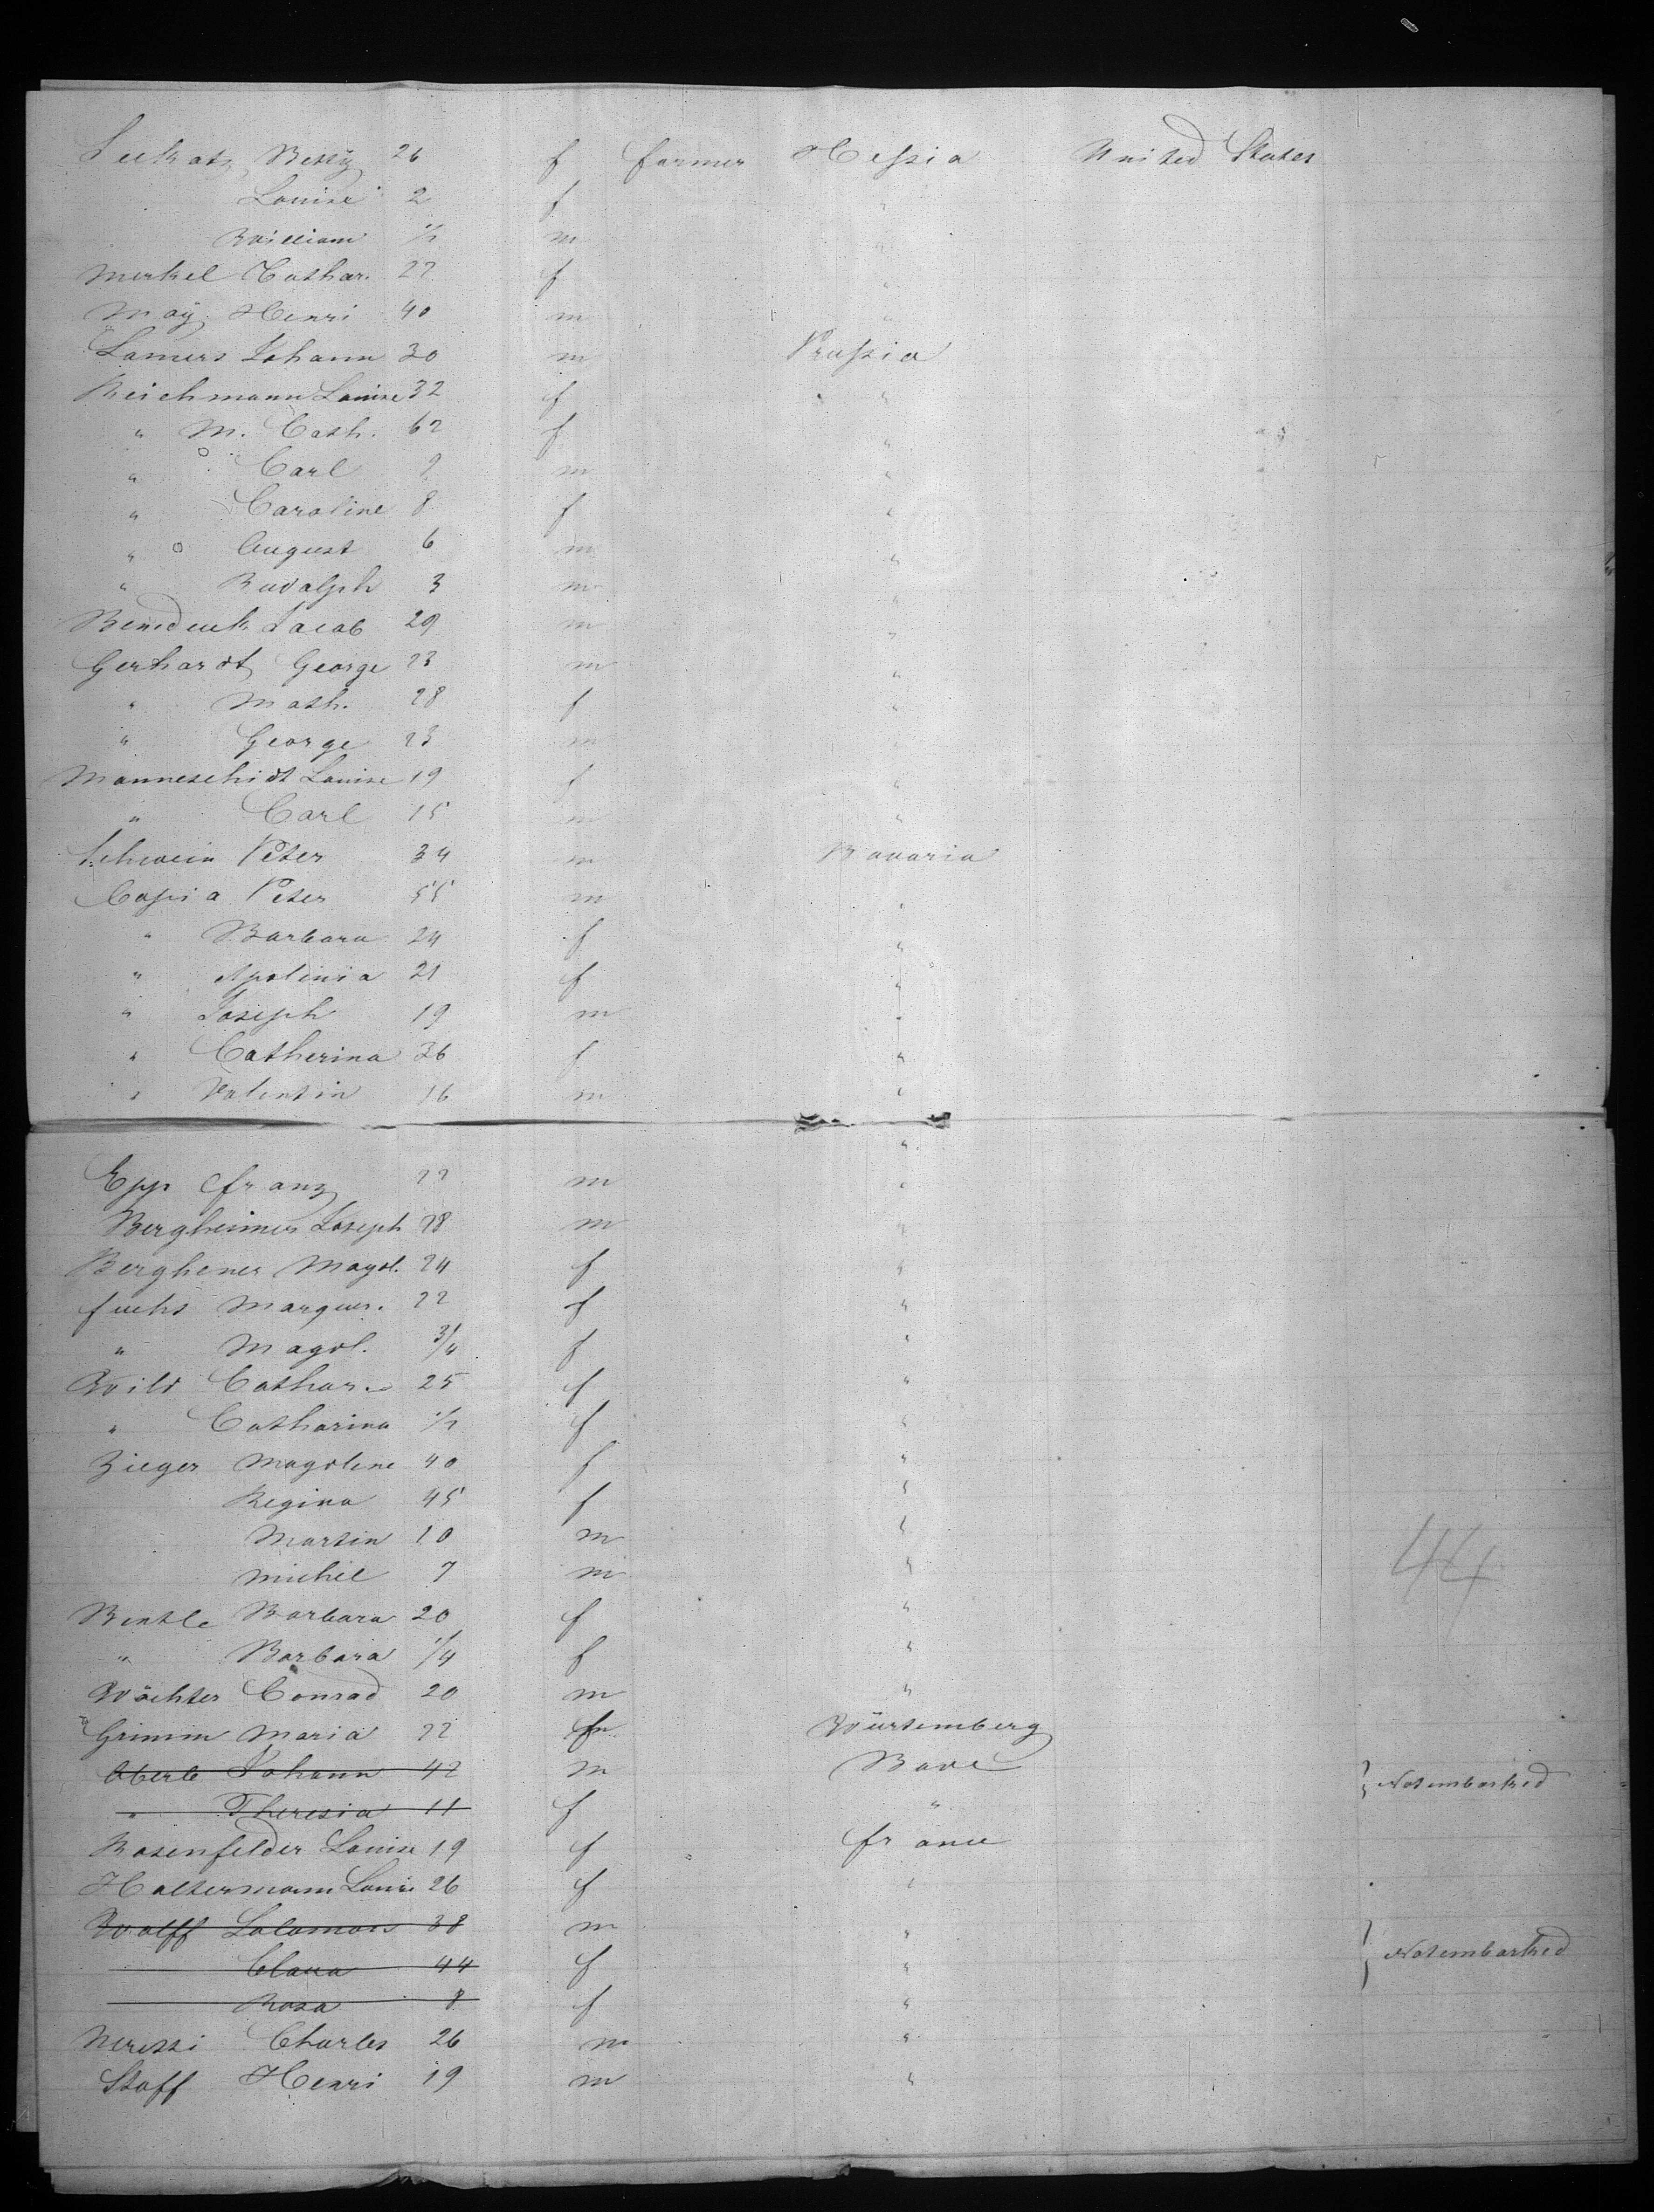 Leekatz Betty 26 f farmer Hessia United States
Louise 2 f "
William 1/2 m "
Merkel Cathar. 22 f "
May Henri 40 m "
Lamers Johann 30 m Prussia
Reichmann Louise 32 f "
" M. Cath. 62 f "
" Carl 9 m "
" Caroline 8 f "
" August 6 m "
" Rudolph 3 m "
Jacob 29 m "
Gerhardt George 23 m "
" Math. 28 f "
" George 23 m "
Manneschidt Louise 19 f "
" Carl 15 m "
Schwein Peter 34 m Bavaria
Cassia Peter 55 m "
" Barbara 24 f "
" Apolinia 21 f "
" Joseph 19 m "
" Catherina 36 f "
" Valentin 16 m "
"
Epp Franz 22 m "
Bergheimer Joseph 28 m "
Berghener Magd. 24 f "
Fuchs Marguer. 22 f "
" Magd. 3/4 f "
Wild Cathar. 25 f "
" Catharina 1/2 f "
Zieger Magdlene 40 f "
Regina 45 f "
Martin 10 m "
Michel 7 m "
Bentle Barbara 20 f "
" Barbara 1/4 f "
Wächter Conrad 20 m "
Grimm Maria 22 f Würtemberg
Oberle Johann 42 m Bade } Not embarked
" Theresia 11 f "
Rosenfelder Louise 19 f France
Haltermann Louise 26 f "
Wolff Salomon 38 m "
Clara 44 f " } Not embarked
Rosa 8 f "
Charles 26 m "
Staff Henri 19 m "
44